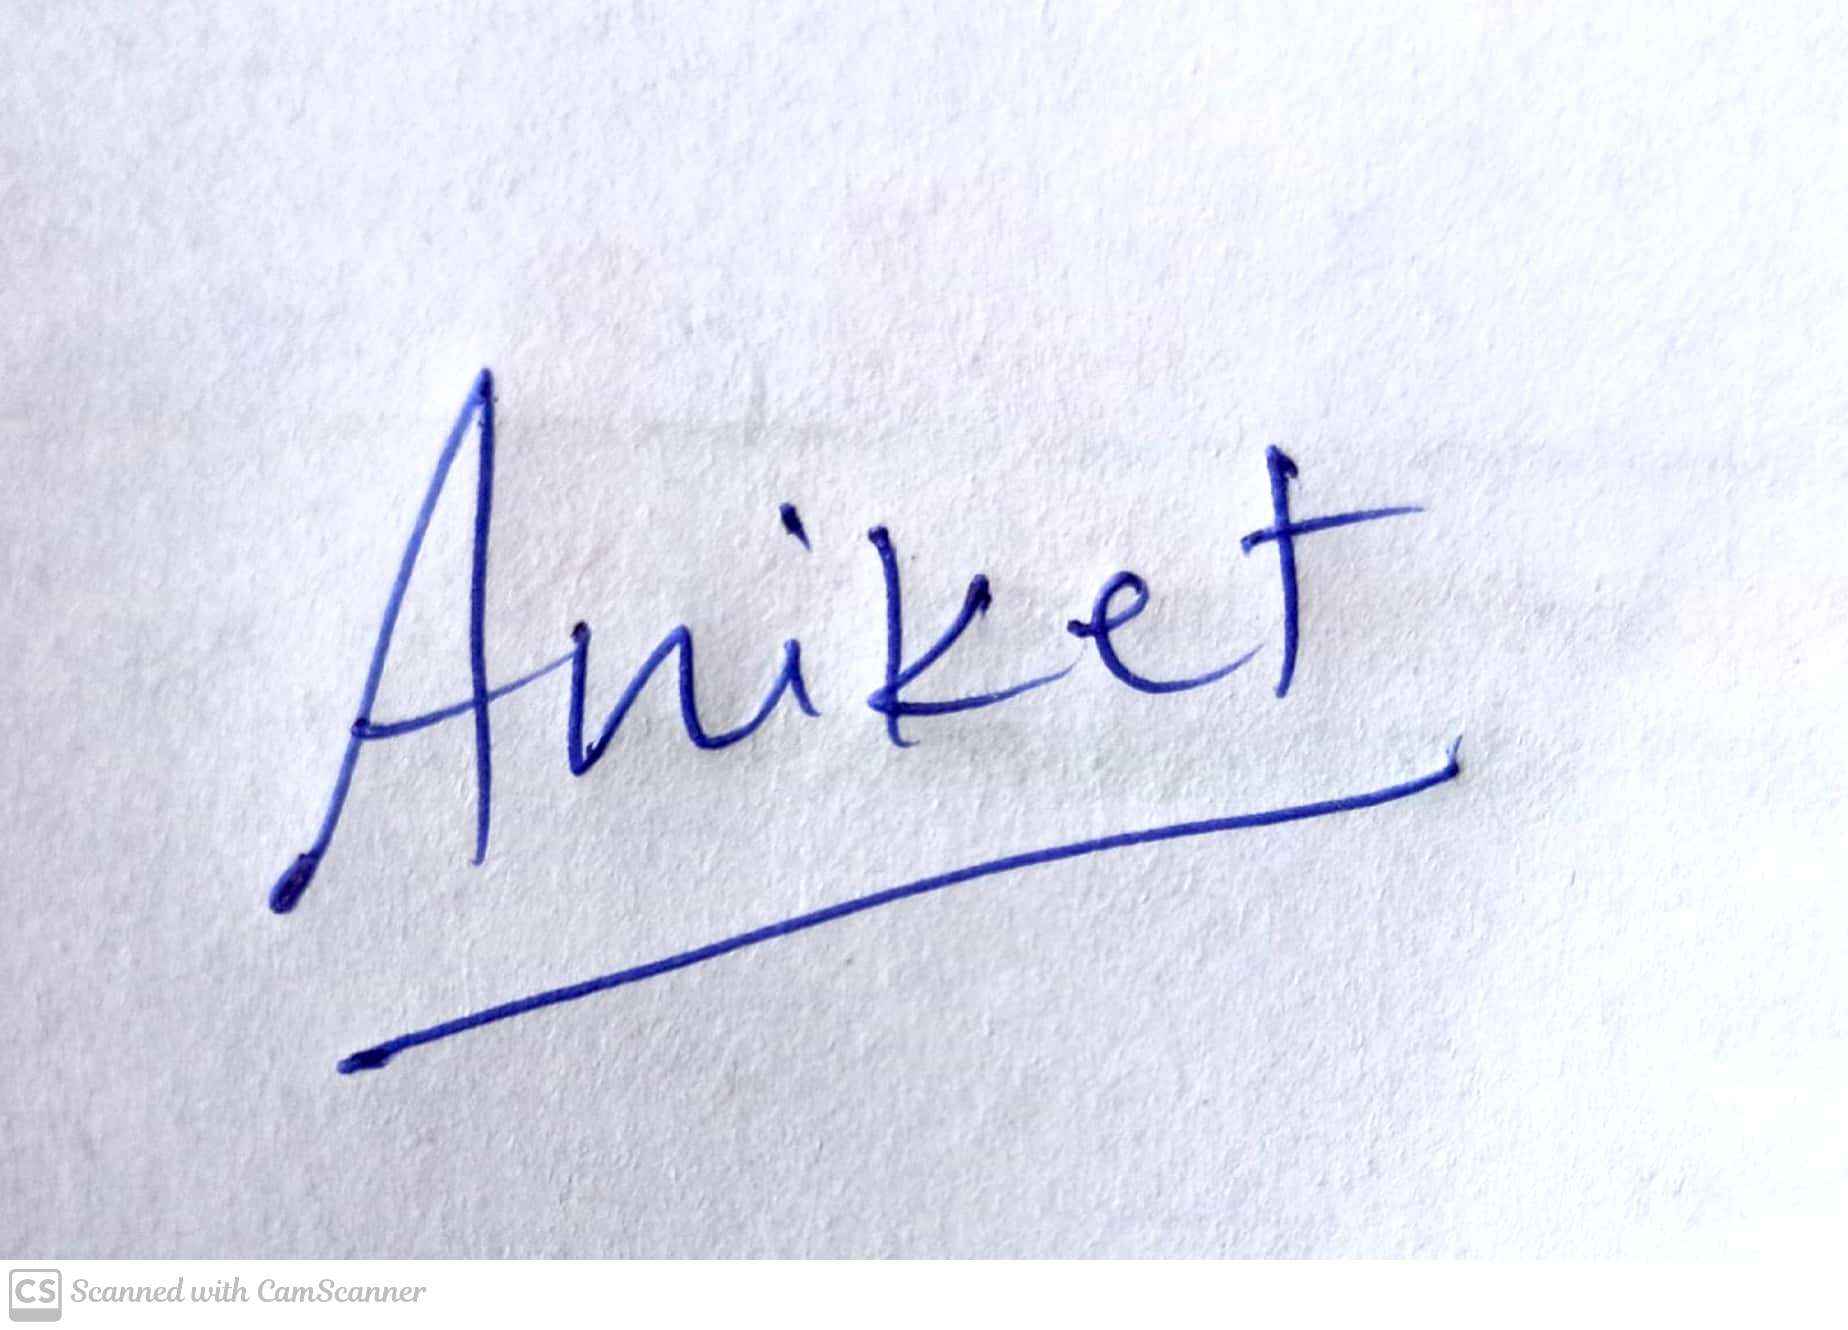 Aniket
CS Scanned with CamScanner